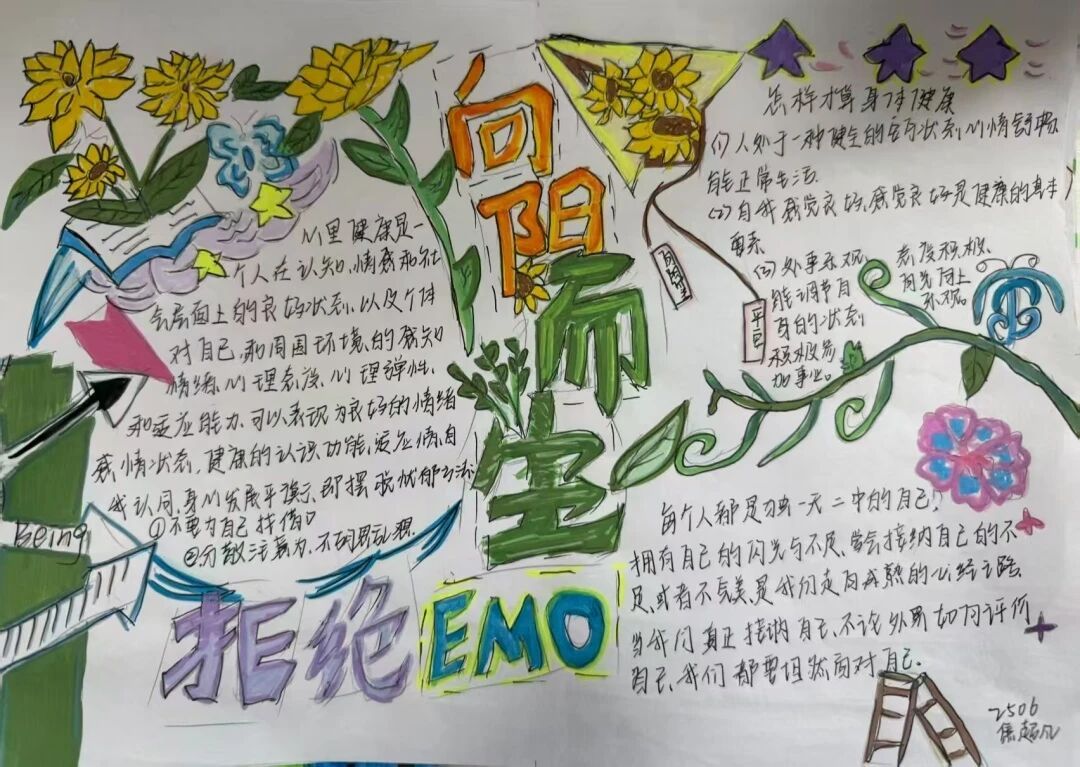 向
阳
而
生
拒绝
EMO
心里健康是一
个人在认知、情感和社
会层面上的良好状态，以及个体
对自己、和周围环境、的感知
情绪、心理态度、心理弹性、
和适应能力，可以表现为良好的情绪
感情状态、健康的认识功能、适应情、自
我认同、身心发展平衡、即摆脱忧郁
①不要为自己找借口
②分散注意力，不胡思乱想.
Being
向阳而生
平
怎样才算身体健康
(1)人处于一种健全的状态，心情舒畅
能正常生活.
(2)自我感觉良好、感觉良好是健康的基本
要素
(3)处事乐观
能调节自
身的状态，
积极参
加事业。
态度积极
阳光向上
乐观。
每个人都是独一无二中的自己!
拥有自己的闪光与不足、学会接纳自己的不
足、或者不完美、是我们走向成熟的心经之路.
当我们真正接纳自己、不论外界如何评价
自己、我们都要坦然面对自己.
2506